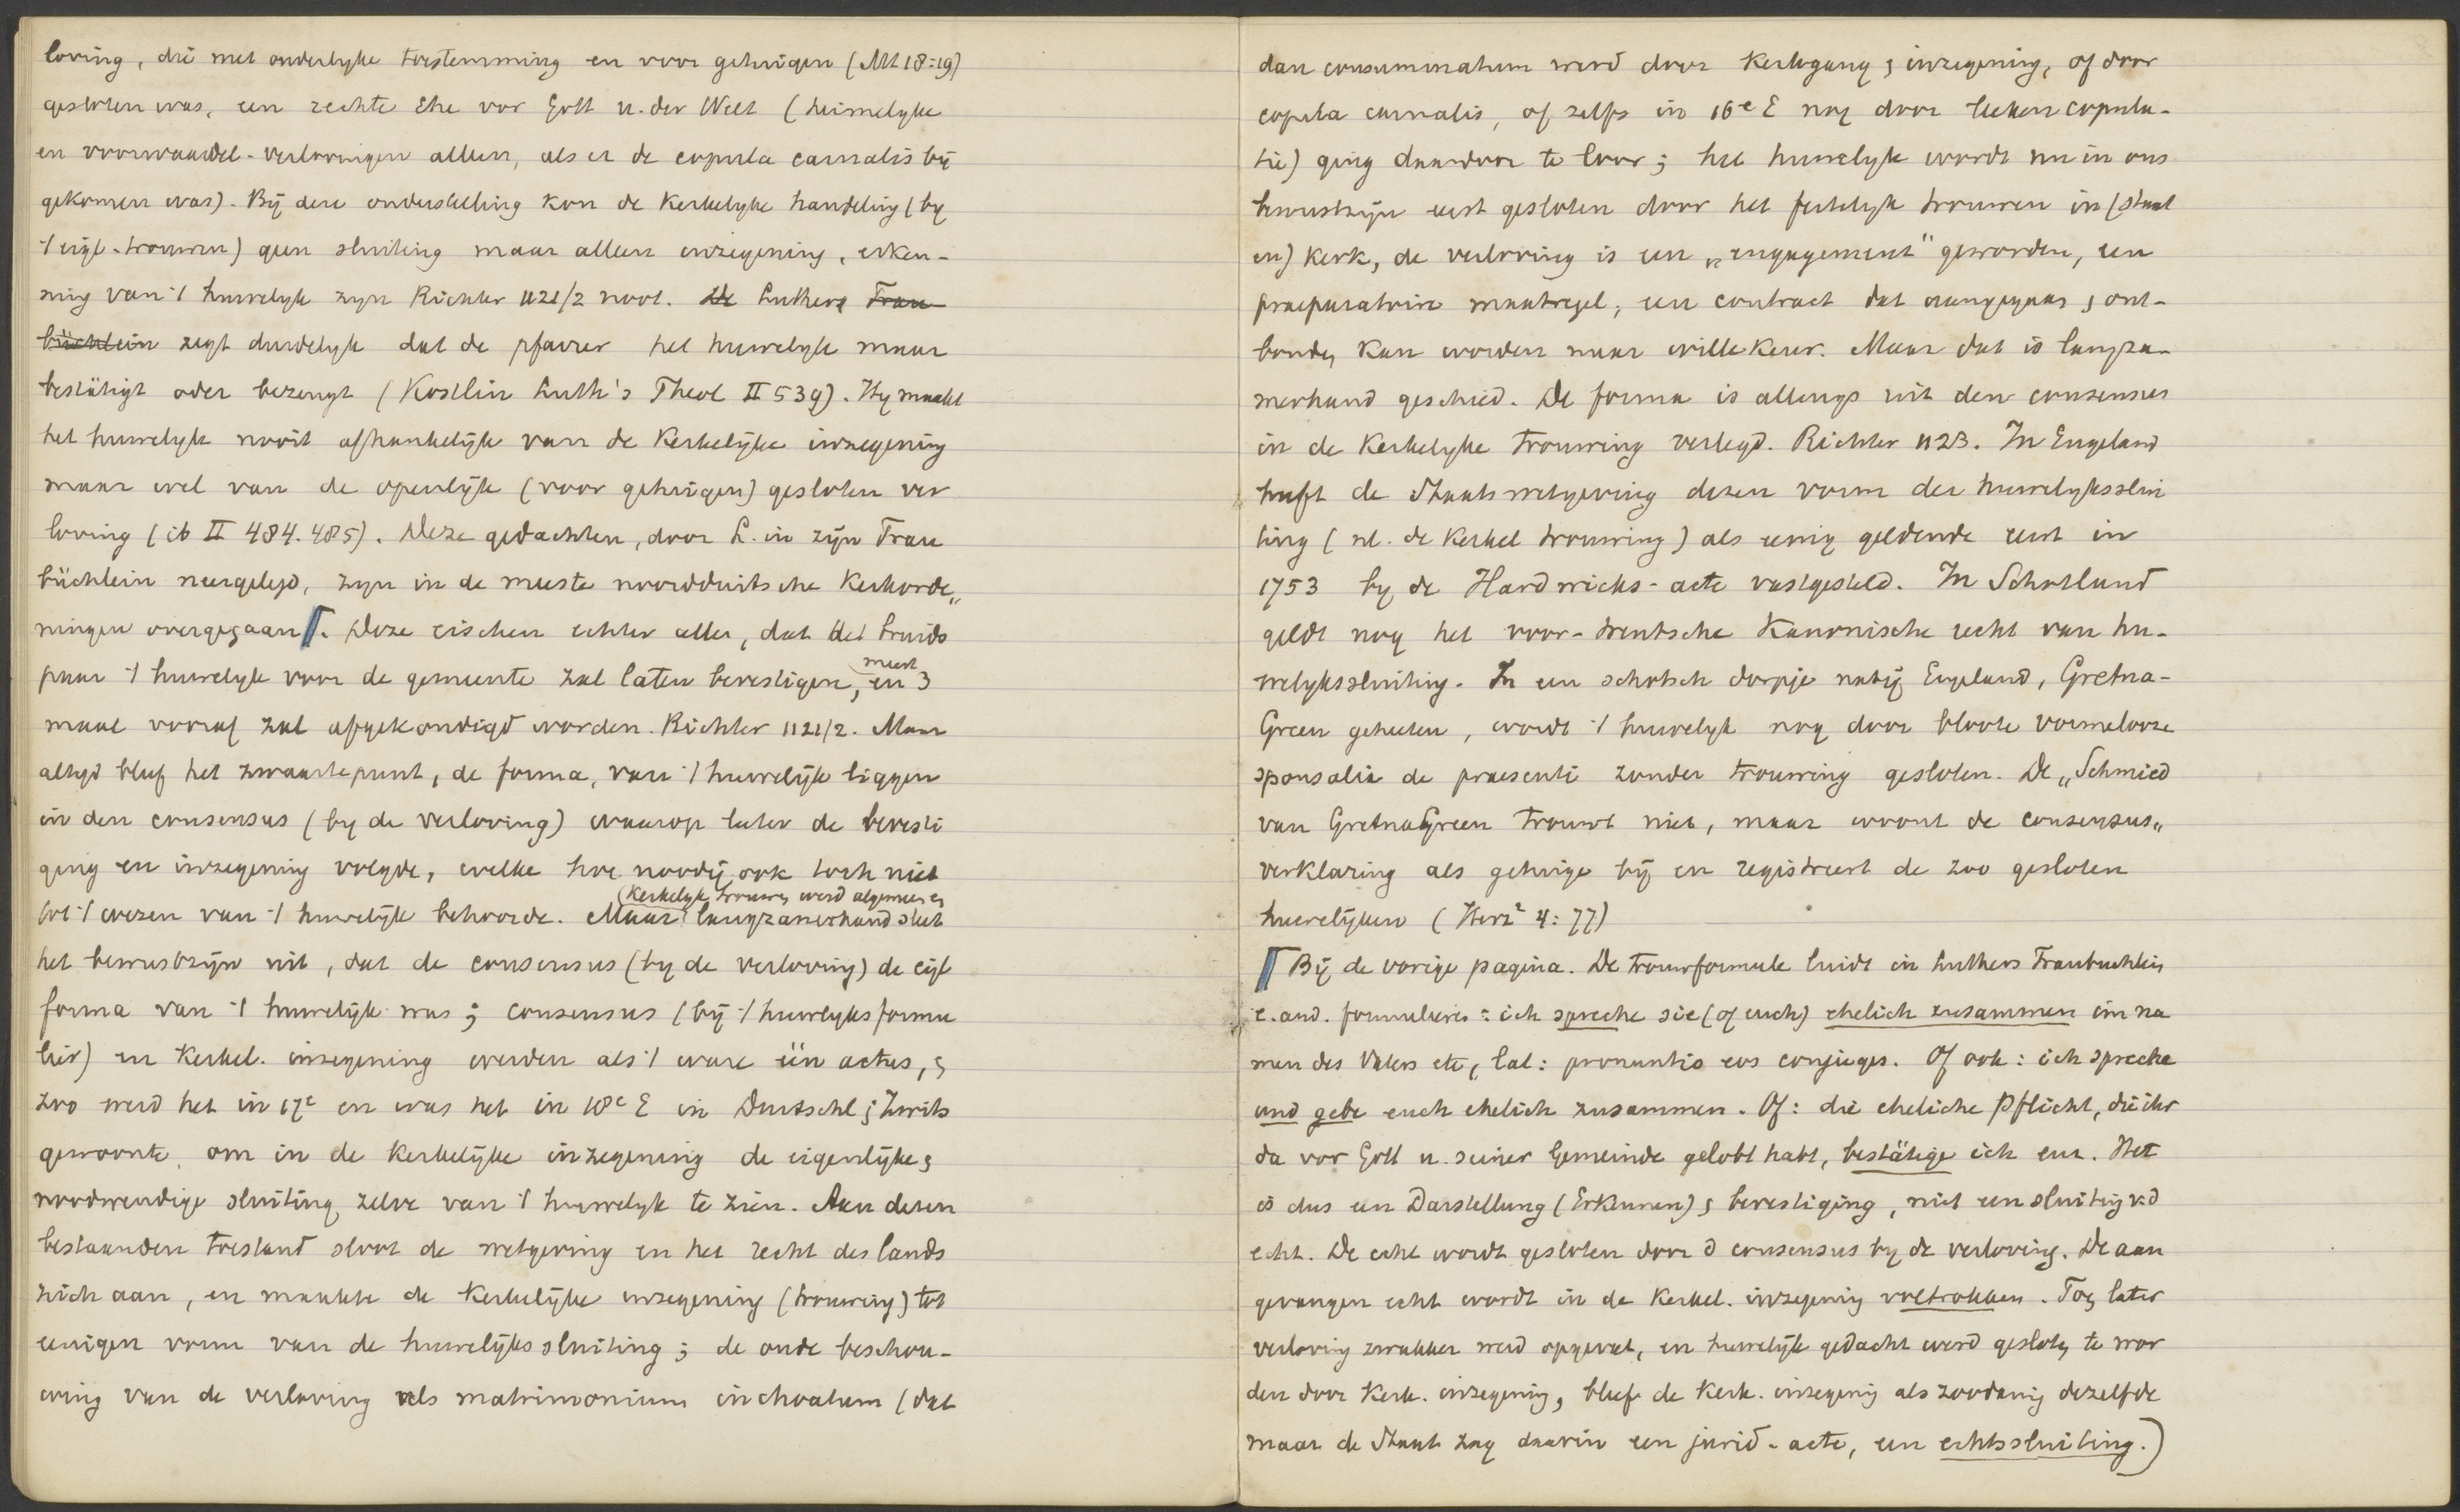 loving, die met ouderlyke toestemming en voor getuigen (Mt 18:19)
gesloten was, een rechte Ehe vor Gott u. der Welt (heimelyke
en voorwaardel-verlovingen alleen, als er de copula carnalis bij
gekomen was). Bij deze onderstelling kon de kerkelyke handeling (by
't eigl-trouwen) geen sluiting maar alleen inzegening, erken-
ning van 't huwelyk zyn Richter 1121/2 noot. De Luthers Trau
büchlein zegt duidelyk dat de pfarrer het huwelyk maar
bestätigt oder bezeugt (Kostlin Luth's Theol II 539). Hy maakt
het huwelyk nooit afhankelijk van de kerkelijke inzegening
maar wel van de openlijk (voor getuigen) gesloten ver
loving (ib II 484. 485). Deze gedachten, door L. in zijn Trau
büchlein neergelegd, zyn in de meeste noordduitsche kerkorde„
ningen overgegaan⟦. Deze eischen echter allen, dat het bruids
paar 't huwelyk voor de gemeente zal laten bevestigen, en meest 3
maal vooraf zal afgekondigd worden. Richter 1121/2. Maar
altyd bleef het zwaartepunt, de forma, van 't huwelijk liggen
in den consensus (by de verloving) waarop later de bevesti
ging en inzegening volgde, welke hoe noodij ook toch niet
tot 't wezen van 't huwelijk behoorde. Maar (kerkelyk trouwen werd algemeen en langzamerhand sleet
het bewustzijn uit, dat de consensus (by de verloving) de eigl
forma van 't huwelijk was; consensus (bij 't huwelyksformu
lier) en kerkel. inzegening werden als 't ware één actus, en
zoo werd het in 17e en was het in 18e E in Duitschl en Zwits
gewoonte, om in de kerkelijke inzegening de eigenlijke en
noodwendige sluiting zelve van 't huwelyk te zien. Aan dezen
bestaanden toestand sloot de wetgeving en het recht des lands
zich aan, en maakte de kerkelijke inzegening (trouwing) tot
eenigen vorm van de huwelijkssluiting; de oude beschou-
wing van de verloving als matrimonium inchoatum (dat
dan consummatum werd door kerkgang en inzegening, of door
copula carnalis, of zelfs in 16e E nog door leeken copula-
tie) ging daardoor te loor; het huwelyk wordt nu in ons
bewustzijn eerst gesloten door het feitelyk trouwen in (staat
en) kerk, de verloving is een „engagement" geworden, een
praeparatoire maatregel, een contract dat aangegaan en ont-
bonden kan worden naar willekeur. Maar dat is langza-
merhand geschied. De forma is allengs uit den consensus
in de kerkelyke trouwing verlegd. Richter 1123. In Engeland
heeft de Staatswetgeving dezen vorm der huwelykssluit
ting (nl. de kerkel trouwing) als eenig geldende eerst in
1753 by de Hardwicks-acte vastgesteld. In Schotland
geldt nog het voor-trentsche kanonische recht van hu-
welykssluiting. In een schotsch dorpje nabij Engeland, Gretna-
Green geheeten, wordt 't huwelyk nog door bloote vormelooze
sponsalia de praesenti zonder trouwing gesloten. De „Schmied
van GretnaGreen trouwt niet, maar woont de consensus„
verklaring als getuige bij en registreert de zoo gesloten
huwelijken (Herz² 4:77)
⟦ Bij de vorige pagina. De trouwformule luidt in Luthers Traubuchlein
e. and. formulieren: ich spreche sie (of euch) ehelich zusammen im na
men des Vaters etc, lat: pronuntio eos conjuges. Of ook: ich spreche
und gebe euch ehelich zusammen. Of: die eheliche Pflicht, die ihr
da vor Gott u. seiner Gemeinde gelobt habt, bestätige ich eur. Het
is dus een Darstellung (Erkennen) en bevestiging, niet een sluiting v.d
echt. De echt wordt gesloten door d consensus by de verloving. De aan
gevangen echt wordt in de kerkel. inzegening voltrokken. Toen later
verloving zwakker werd opgevat, en huwelijk gedacht werd gesloten te wor
den door kerk. inzegening, bleef de kerk. inzegening als zoodanig dezelfde
maar de Staat zag daarin een jurid-acte, een echtssluiting.)